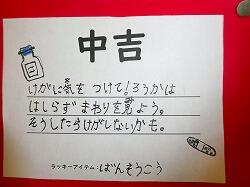 中吉
けがに気をつけて!ろうかは
はしらずまわりを見よう。
そうしたらけがしないかも。
ラッキーアイテム:ばんそうこう